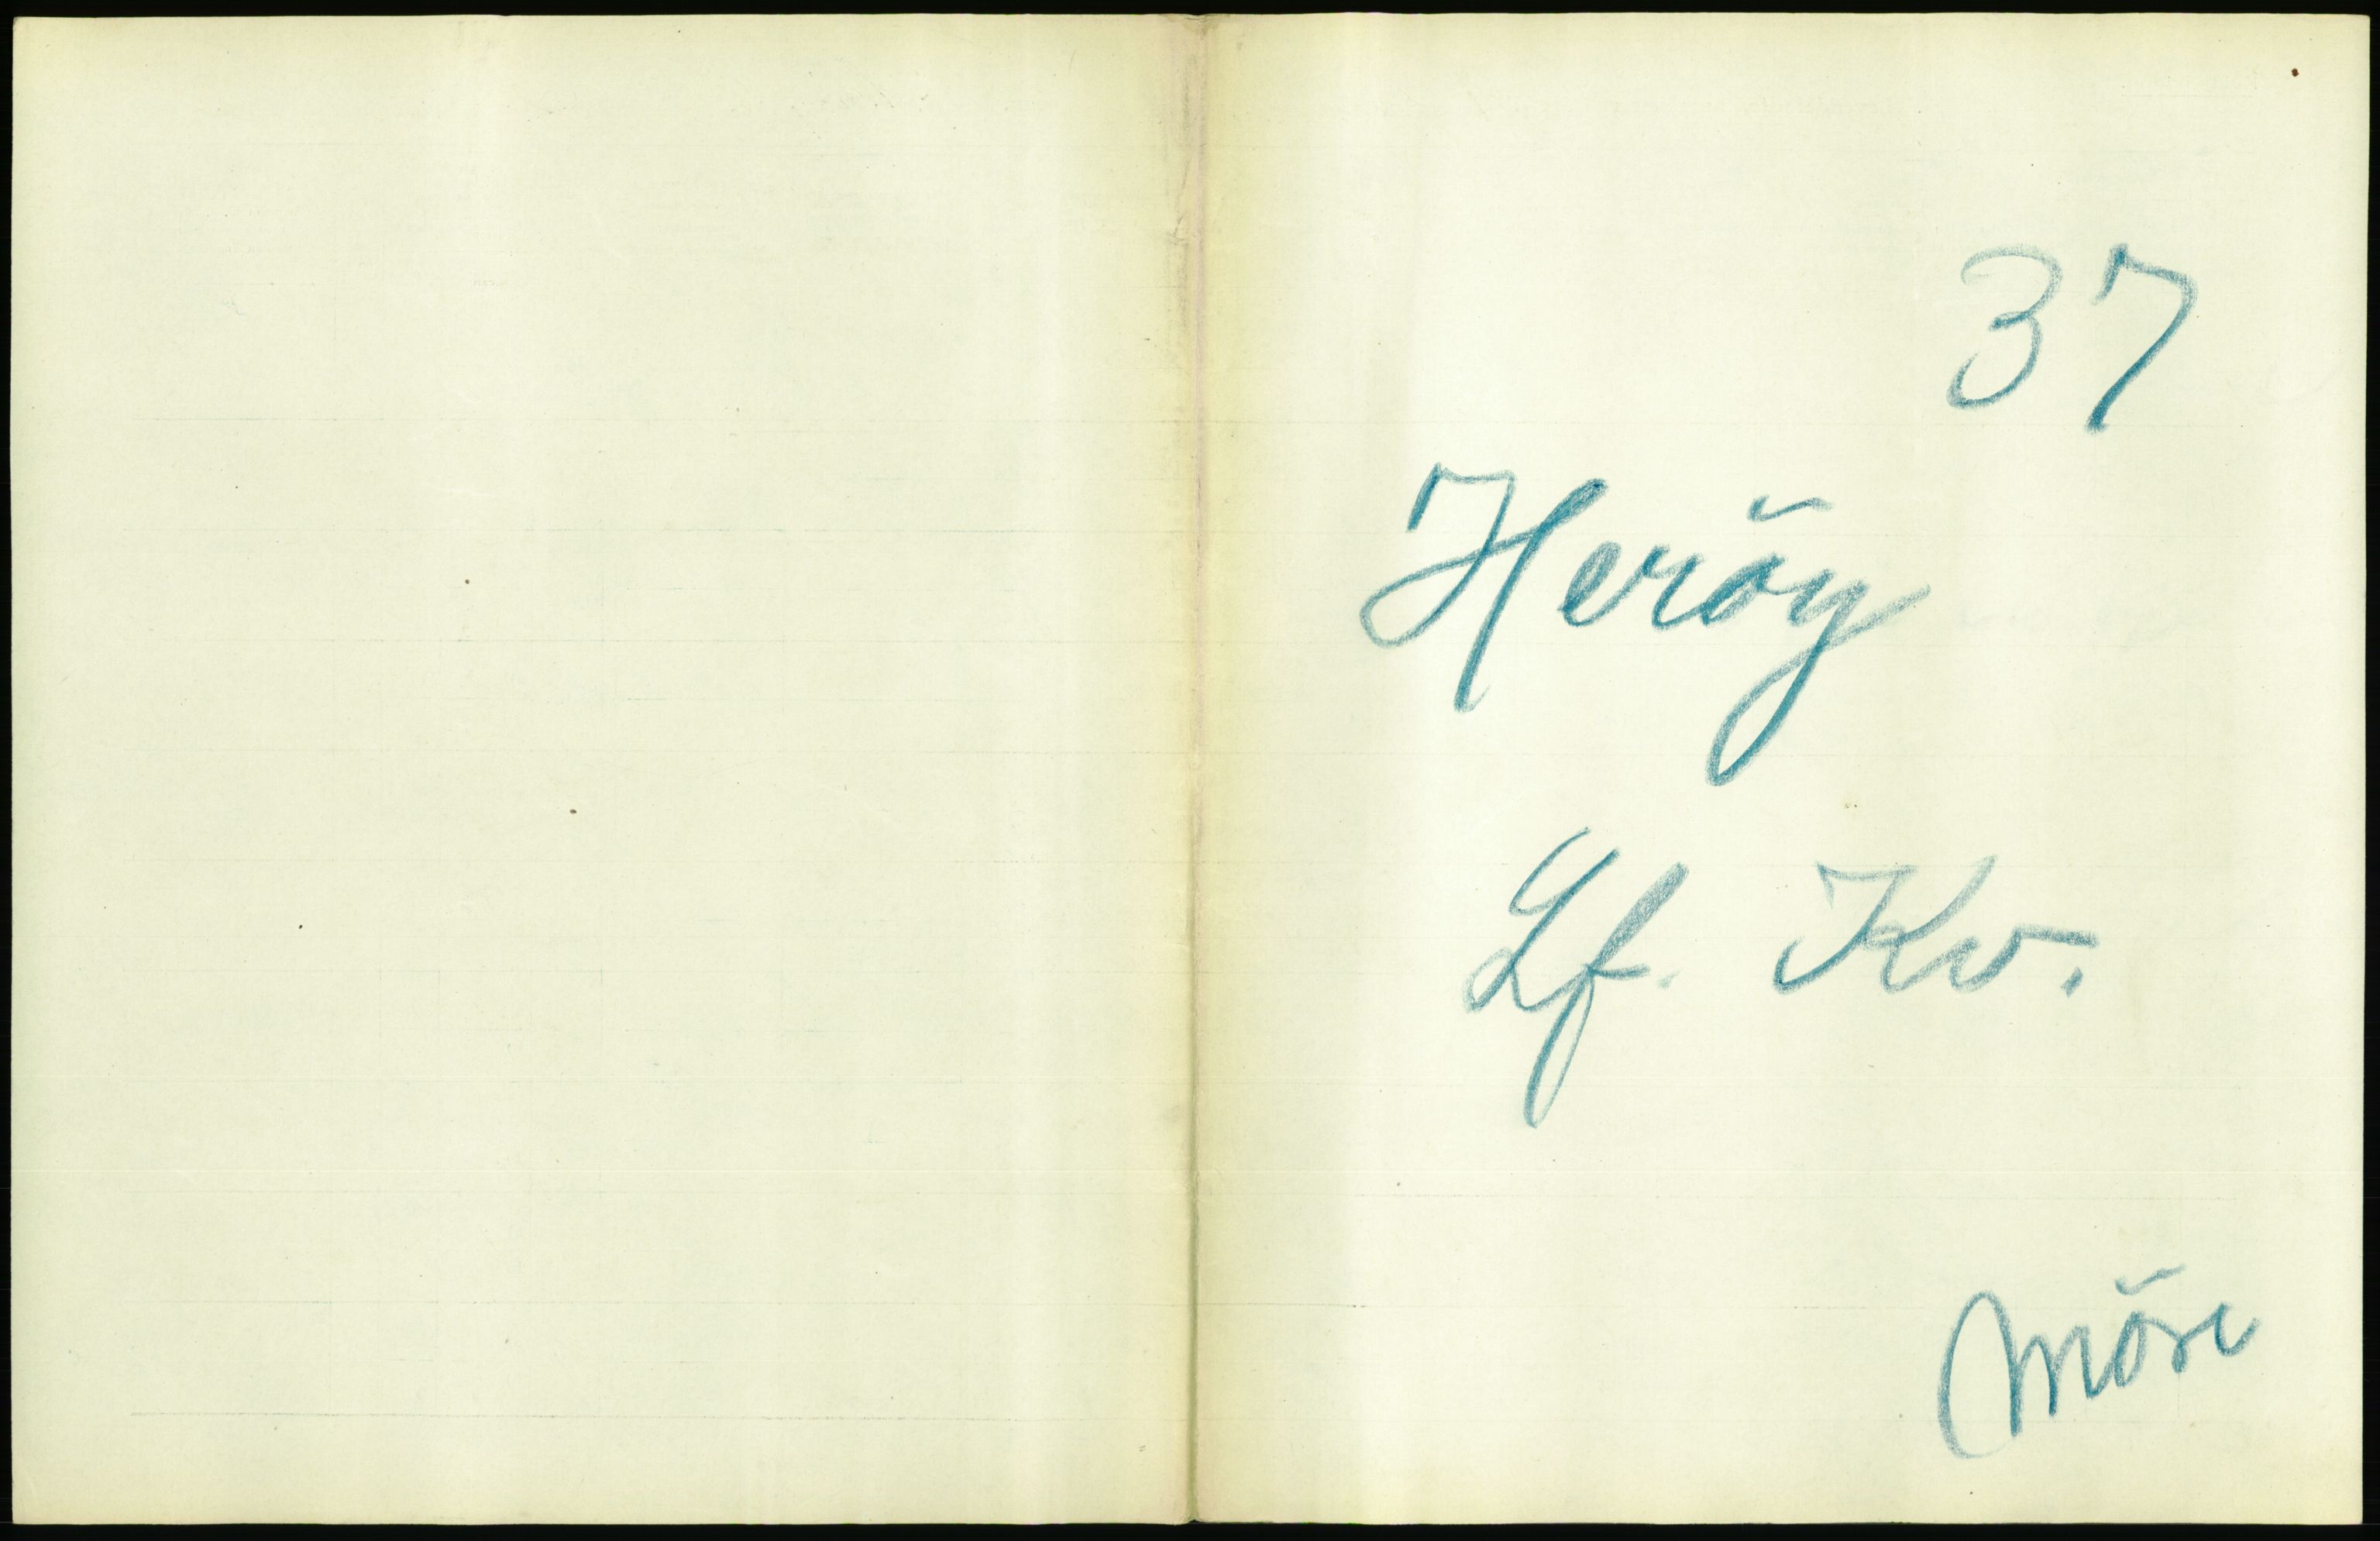 37
Heröy
Lf. Kv.
Möre